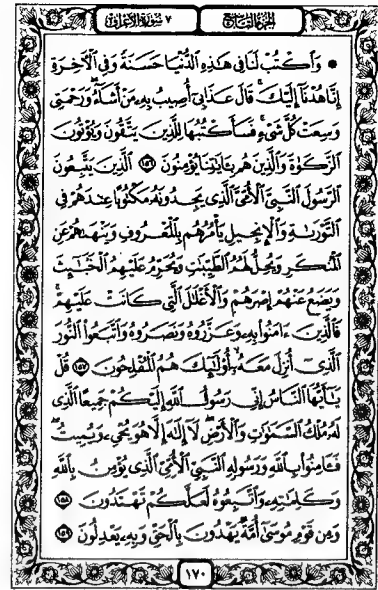 الجزء التاسع ٧ سورة الأعراف
* وَاكْتُبْ لَنَا فِي هَٰذِهِ الدُّنْيَا حَسَنَةً وَفِي الْآخِرَةِ
إِنَّا هُدْنَا إِلَيْكَ قَالَ عَذَابِي أُصِيبُ بِهِ مَنْ أَشَاءُ وَرَحْمَتِي
وَسِعَتْ كُلَّ شَيْءٍ فَسَأَكْتُبُهَا لِلَّذِينَ يَتَّقُونَ وَيُؤْتُونَ
الزَّكَوٰةَ وَالَّذِينَ هُم بِـَٔايَٰتِنَا يُؤْمِنُونَ ١٥٦ الَّذِينَ يَتَّبِعُونَ
الرَّسُولَ النَّبِيَّ الْأُمِّيَّ الَّذِي يَجِدُونَهُ مَكْتُوبًا عِندَهُمْ فِي
التَّوْرَىٰةِ وَالْإِنجِيلِ يَأْمُرُهُم بِالْمَعْرُوفِ وَيَنْهَىٰهُمْ عَنِ
الْمُنكَرِ وَيُحِلُّ لَهُمُ الطَّيِّبَٰتِ وَيُحَرِّمُ عَلَيْهِمُ الْخَبَٰٓئِثَ
وَيَضَعُ عَنْهُمْ إِصْرَهُمْ وَالْأَغْلَٰلَ الَّتِي كَانَتْ عَلَيْهِمْ
فَالَّذِينَ ءَامَنُوا بِهِ وَعَزَّرُوهُ وَنَصَرُوهُ وَاتَّبَعُوا النُّورَ
الَّذِي أُنزِلَ مَعَهُ أُولَٰئِكَ هُمُ الْمُفْلِحُونَ ١٥٧ قُلْ
يَٰٓأَيُّهَا النَّاسُ إِنِّي رَسُولُ اللَّهِ إِلَيْكُمْ جَمِيعًا الَّذِي
لَهُ مُلْكُ السَّمَٰوَٰتِ وَالْأَرْضِ لَا إِلَٰهَ إِلَّا هُوَ يُحْيِي وَيُمِيتُ
فَـَٔامِنُوا بِاللَّهِ وَرَسُولِهِ النَّبِيِّ الْأُمِّيِّ الَّذِي يُؤْمِنُ بِاللَّهِ
وَكَلِمَٰتِهِ وَاتَّبِعُوهُ لَعَلَّكُمْ تَهْتَدُونَ ١٥٨
وَمِن قَوْمِ مُوسَىٰ أُمَّةٌ يَهْدُونَ بِالْحَقِّ وَبِهِ يَعْدِلُونَ ١٥٩
١٧٠